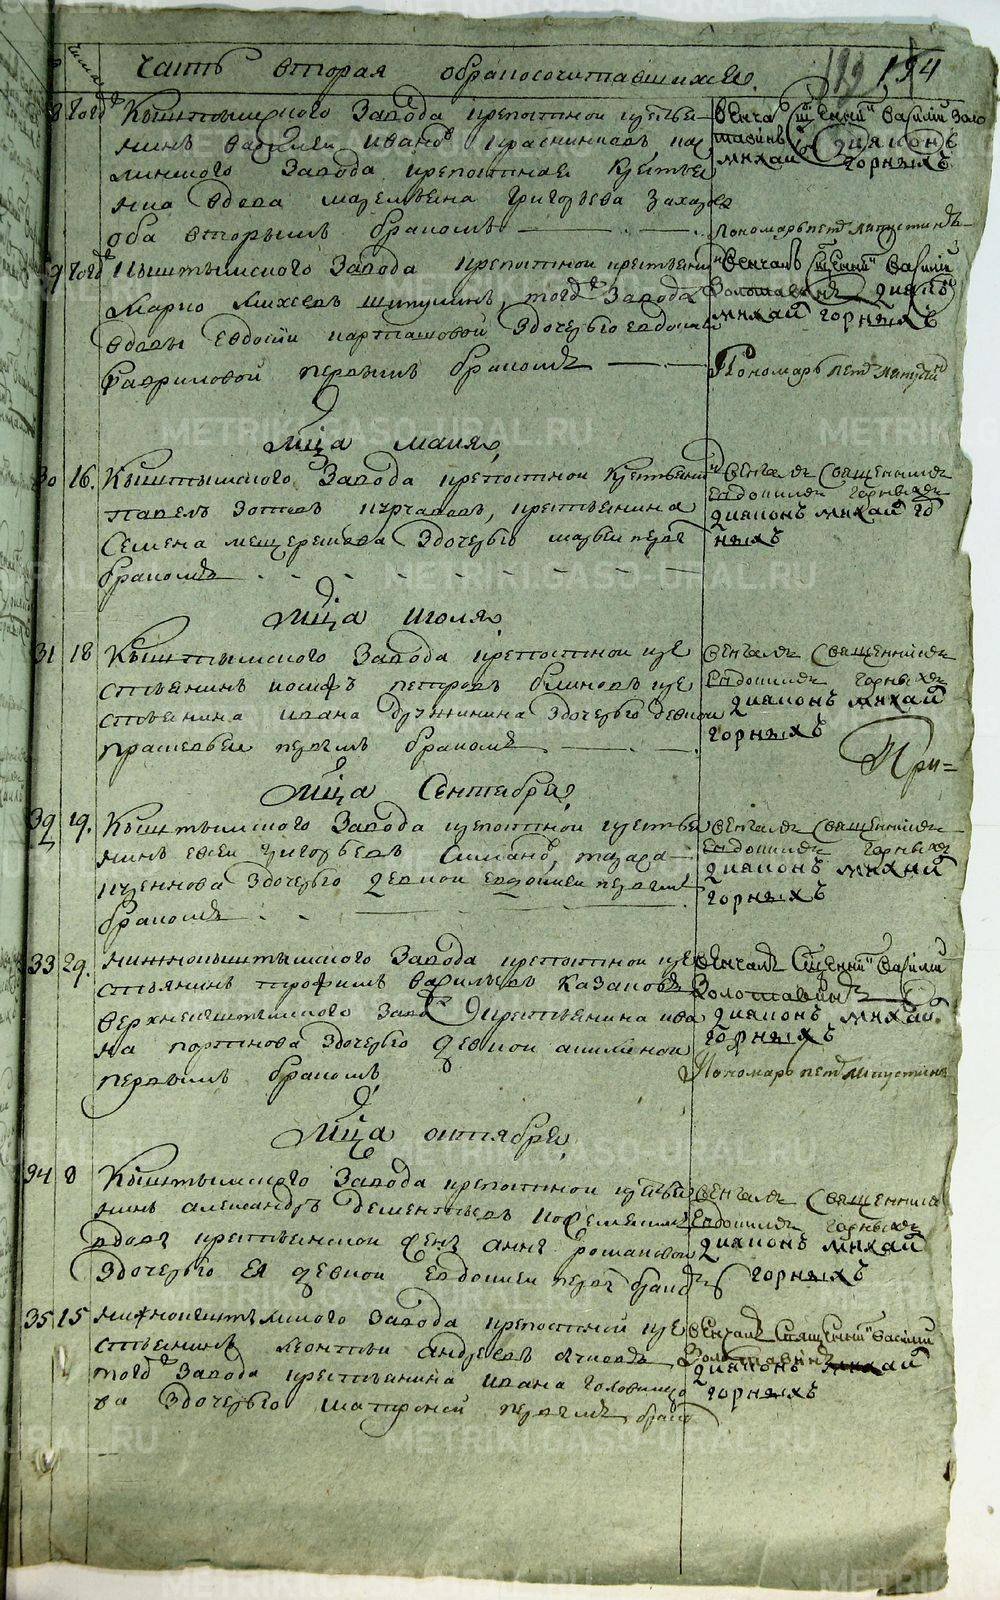 часть вторая обракосочитавшихся. 194
28 тогож Кыштымского Завода крепостной крестья
нинъ Василеи Иванов Красниковъ ка
линского Завода крепостная Крестьян
ина вдова Григорьева Захаров
оба вторымъ бракомъ
Венча Сщенныи Васили Золо
тавинъ диаконъ
михаи Горныхъ
Пономарь петр
29 тогож Кыштымского Завода крепостнои крестьянин
Марко Михеевъ тогож Завода
вдовы Евдокии Карташовой Здочерью Евдокиеи
Гавриловой первымъ бракомъ
Венчалъ Сщенныи Васили
Золотавинъ диаконъ
михаи горныхъ
Пономарь петр
Мца Маия
30 16. Кыштымского Завода крепостнои Крестьянин
павелъ Зотовъ Курчавовъ, крестьянина
Семена Мещерякова Здочерью марьеи перв
бракомъ
Венчалъ Священникъ
Евдокимъ Горныхъ
диаконъ михаи го
ныхъ
Мца Июля
31 18 Кыштымского Завода крепостнои кре
стьянинъ иосифъ петровъ блиновъ кре
стьянина ивана дружинина Здочерью девкои
прасковьеи первымъ бракомъ
Венчалъ Священникъ
Евдокимъ Горныхъ
диаконъ михаи
горныхъ
При=
Мца Сентября
32 19. Кыштымского Завода крепостнои крестья
нинъ Евсеи Григорьевъ
Здочерью девкои Евдокиеи первымъ
бракомъ
Венчалъ Священникъ
Евдокимъ Горныхъ
диаконъ михаи
горныхъ
33 29. нижнокыштымского Завода крепостнои кре
стьянинъ трофимъ Васильевъ Казаковъ
верхнекыштымского Завод крестьянина ива
на портнова Здочерью девкои акилинои
первымъ бракомъ
Венчалъ Сщенныи Васили
Золотавинъ
диаконъ михаи
горныхъ
Пономарь петр
Мца октября
34 8 Кыштымского Завода крепостнои крестья
нинъ александръ дементьевъ
вдовы крестьянской аннъ романовои
Здочерью Ея девкои Евдокиеи перв брако
Венчалъ Священникъ
Евдокимъ горныхъ
диаконъ михаи
горныхъ
35 15 нижнокыштымского Завода крепостнои кре
стьянинъ леонтеи андреевъ
тогож Завода крестьянина ивана Головищо
ва Здочерью матроной первымъ брако
Венчалъ Священныи Васили
Золотавинъ
диаконъ михаи
горныхъ
METRIKI.GASO-URAL.RU